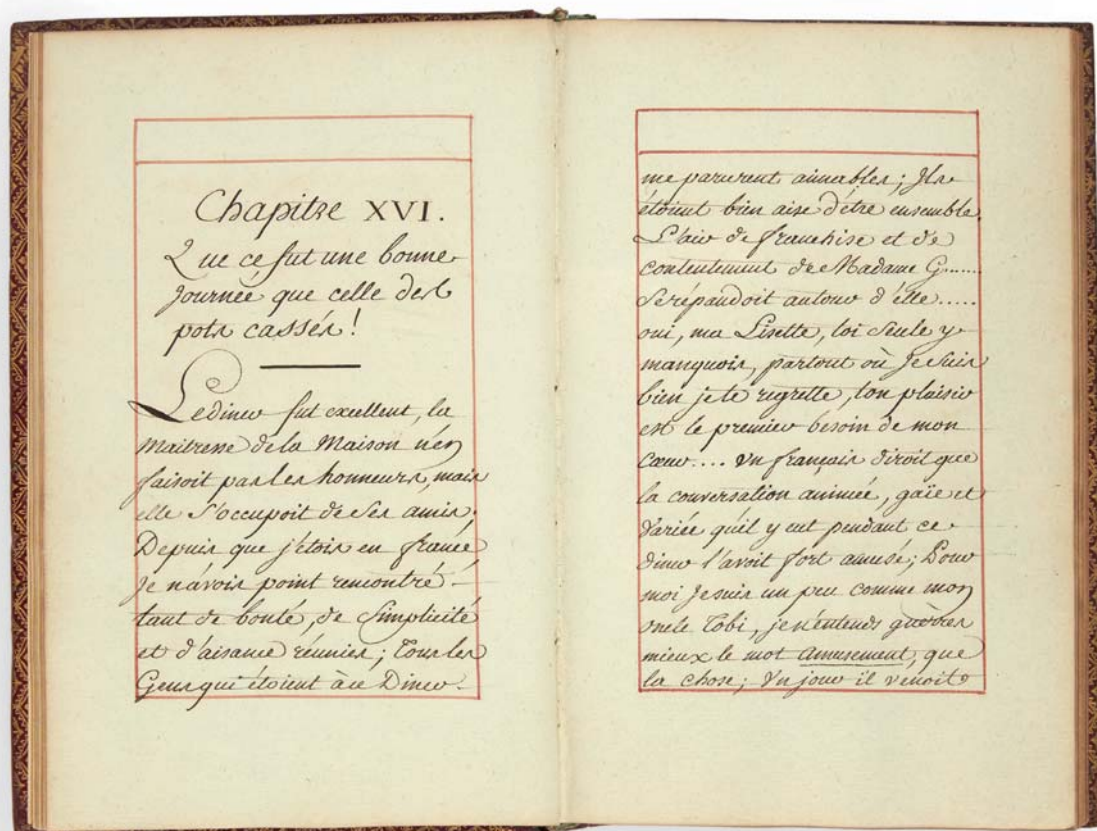 Chapitre XVI.
Que ce fut une bonne
journée que celle des
pots cassés!
Le diner fut excellent, la
Maitresse de la Maison n'en
faisoit pas les honneurs, mais
elle s'occupoit de ses amis,
Depuis que j'étois en france,
Je n'avois point rencontré
tant de bonté, de simplicité
et d'aisance réunies; Tous les
Gens qui étoient à ce Diner
me parurent aimables; Ils
étoient bien aise d'être ensemble.
L'air de franchise et de
contentement de Madame G......
Se répandoit autour d'elle.....
oui, ma Lisette, toi seule y
manquois, partout où Je suis
bien je te regrette, ton plaisir
est le premier besoin de mon
Cœur.... Un français diroit que
la conversation animée, gaïe et
variée qu'il y eut pendant ce
diner l'avoit fort amusé; Pour
moi Je suis un peu comme mon
oncle Tobi, je n'entends guères
mieux le mot amusement, que
la chose; Un jour il venoit